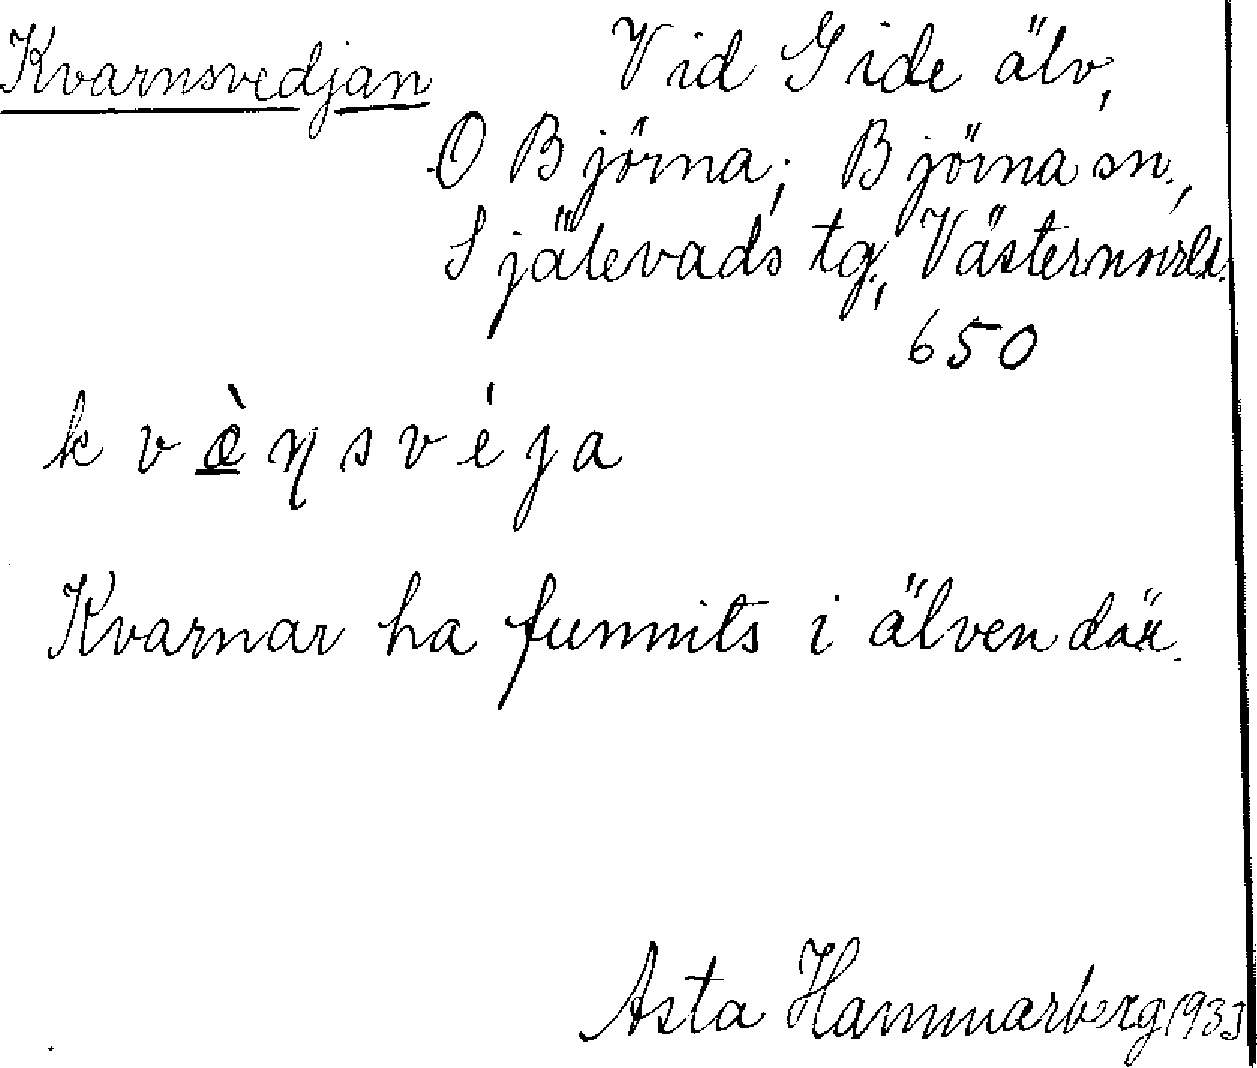 Kvarnsvedjan Vid Gide älv,
O Björna; Björna sn.,
Själevads tg., Västernorrl.
650
k v æ̀ ŋ s v é j a
Kvarnar ha funnits i älven där.
Asta Hammarberg 1933